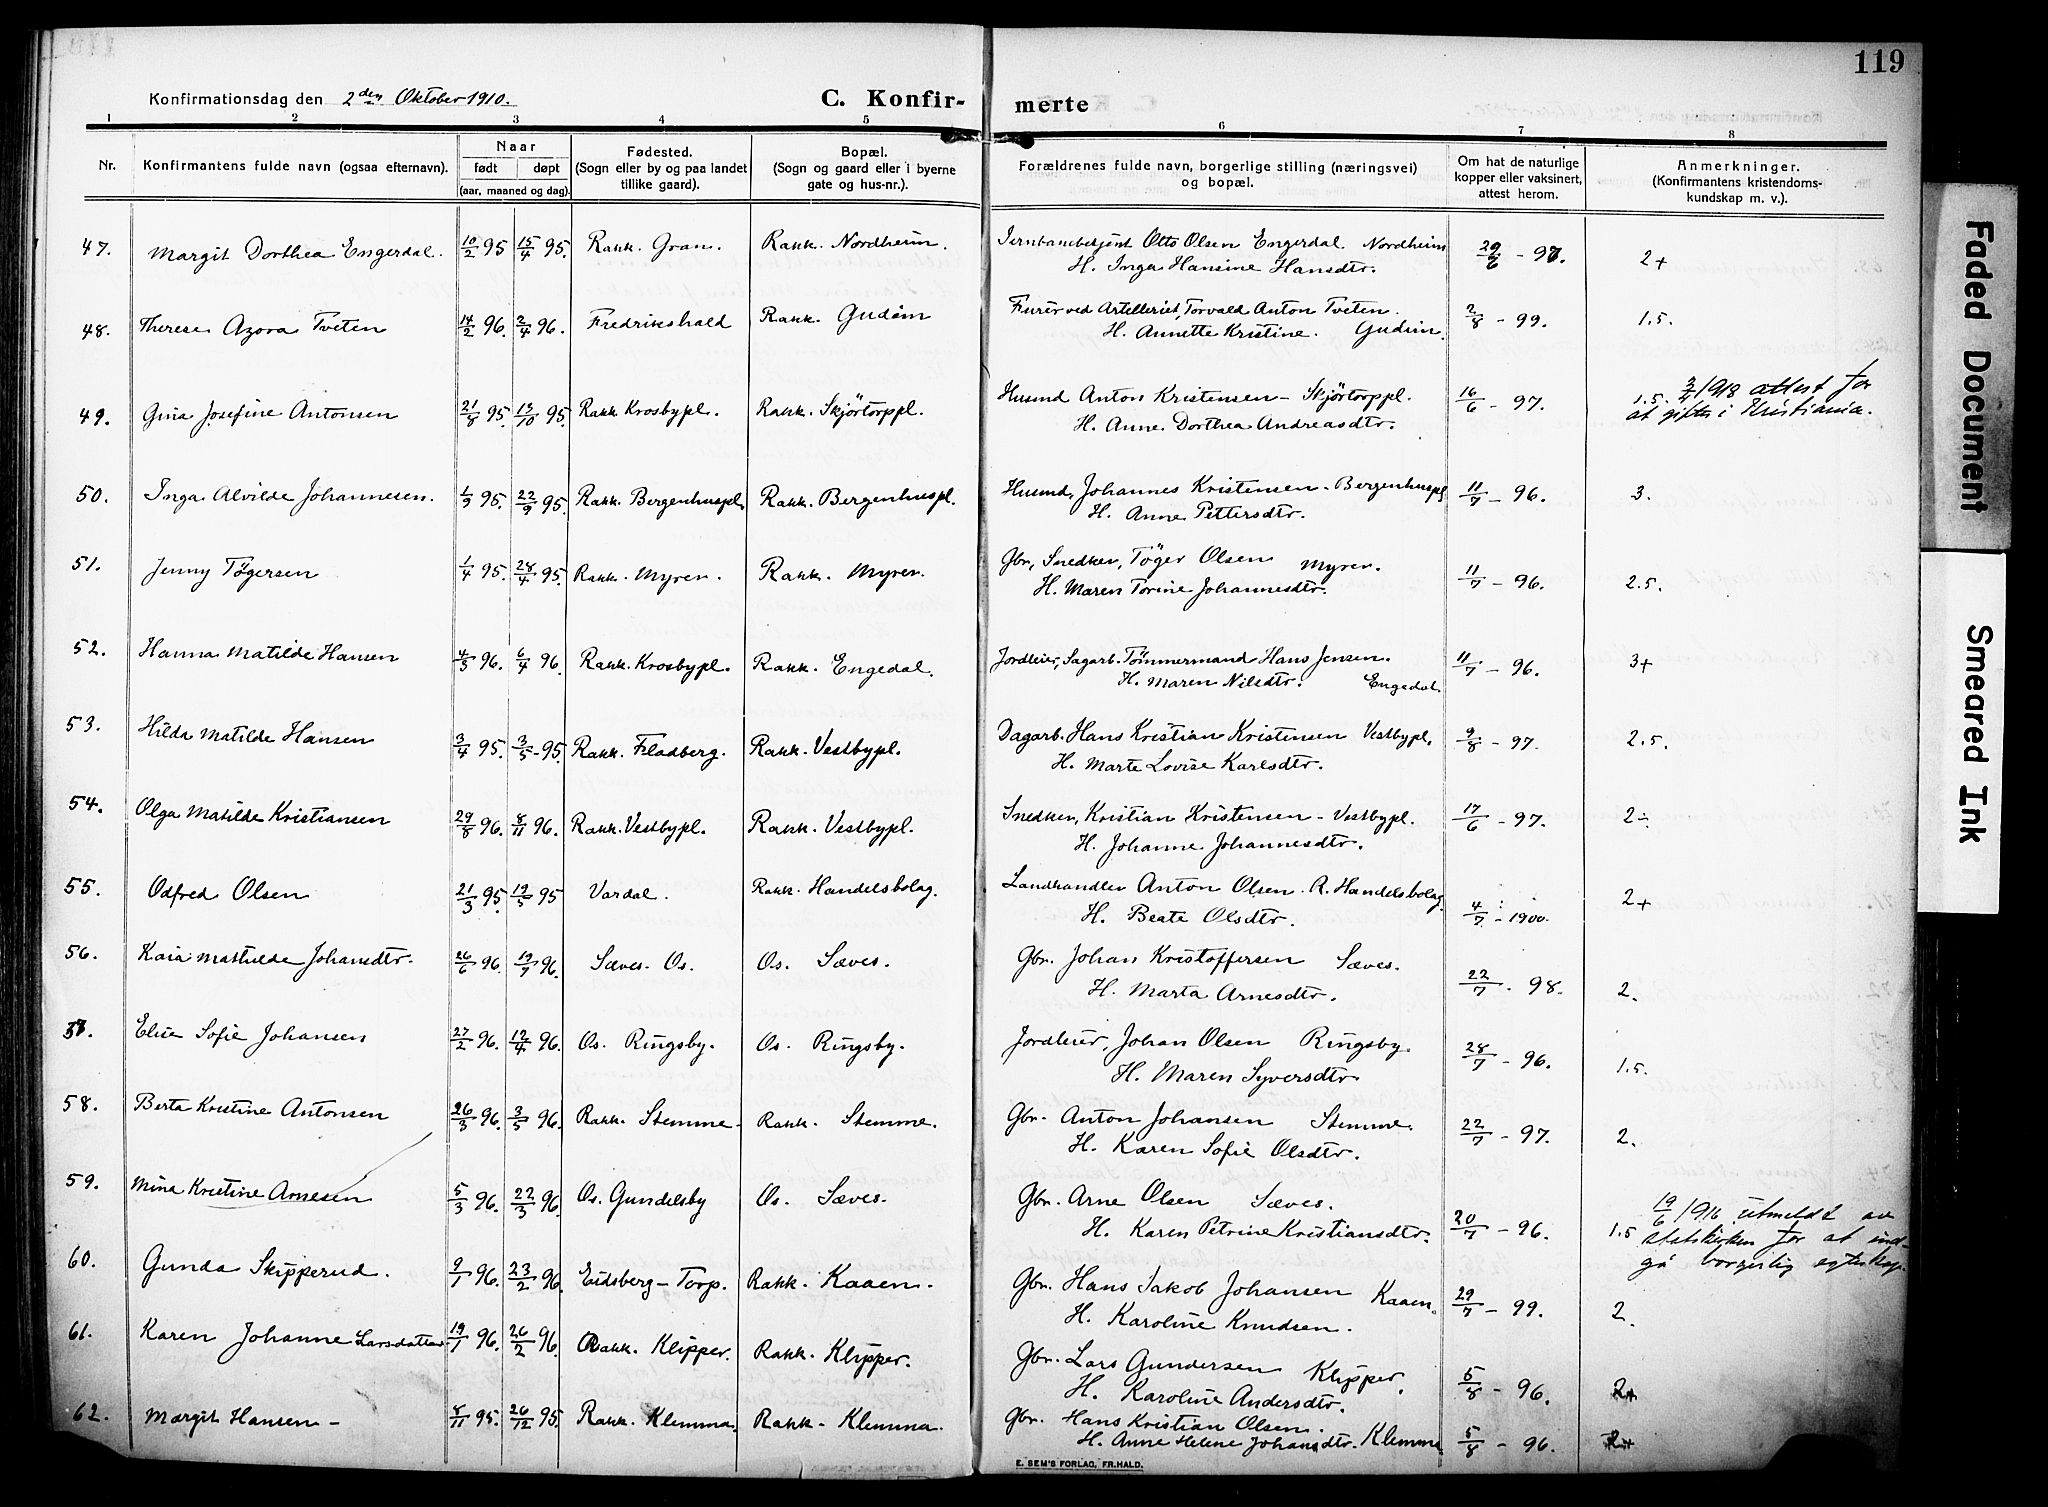 119
Konfirmationsdag den 2den Oktober 1910.
C. Konfirmerte
1 2 3 4 5 6 7 8
Nr.
Konfirmantens fulde navn (ogsaa efternavn).
Naar
født døpt
(aar, maaned og dag).
Fødested.
(Sogn eller by og paa landet
tillike gaard).
Bopæl.
(Sogn og gaard eller i byerne
gate og hus-nr.).
Forældrenes fulde navn, borgerlige stilling (næringsvei)
og bopæl.
Om hat de naturlige
kopper eller vaksinert,
attest herom.
Anmerkninger.
(Konfirmantens kristendoms-
kundskap m. v.).
47. Margit Dorthea Engerdal. 10/2 95 15/4 95. Rakk. Gran. Rakk. Nordheim. Jernbanebetjent Otto Olsen Engerdal. Nordheim 29/6 - 97. 2+
H. Inga Hansine Hansdtr.
48. Therese Azora Tveten 14/2 96. 2/4 96. Fredrikshald Rakk. Gudim Furer ved Artilleriet, Torvald Anton Tveten. 2/8 - 99. 1.5.
H. Annette Kristine. Gudim.
49. Gina Josefine Antonsen 21/8 95. 13/10 95. Rakk Krosbypl. Rakk. Skjörtorppl. Husmd Anton Kristensen - Skjörtorppl. 16/6 - 97. 1.5. 3/7 1918 attest for
H. Anne Dorthea Andreasdtr. at giftes i Kristiania.
50. Inga Alvilde Johannesen. 1/9 95. 22/9 95. Rakk. Bergenhuspl. Rakk. Bergenhuspl. Husmd, Johannes Kristensen - Bergenhuspl 11/7 - 96. 3.
H. Anne Pettersdtr.
51. Jenny Tögersen 1/4 95. 28/4 95. Rakk. Myren. Rakk. Myren. Gbr, Snedker, Töger Olsen Myren. 11/7 - 96. 2.5.
H. Maren Torine Johannesdtr.
52. Hanna Matilde Hansen 4/3 96. 6/4 96 Rakk. Krosbypl. Rakk. Engedal. Jordleier, Sagarb. Tömmermand Hans Jensen. 11/7 - 96. 3+
H. Maren Nilsdtr. Engedal.
53. Hilda Matilde Hansen 3/4 95. 3/5 - 95. Rakk. Fladberg. Rakk. Vestbypl. Dagarb. Hans Kristian Kristensen Vestbypl. 9/8 - 97. 2.5.
H. Marte Lovise Karlsdtr.
54. Olga Matilde Kristiansen 29/8 96. 8/11 96. Rakk. Vestbypl. Rakk. Vestbypl. Snedker, Kristian Kristensen - Vestbypl. 17/6 - 97. 2÷
H. Johanne Johannesdtr.
55. Odfred Olsen 21/3 95. 19/5 95 Vardal. Rakk. Handelsbolag. Landhandler Anton Olsen. R. Handelsbolag. 4/7 - 1900. 2+
H. Beate Olsdtr.
56. Kaia Mathilde Johansdtr. 26/6 96. 19/7 96. Sæves. Os. Os. Sæves. Gbr. Johan Kristoffersen Sæves. 22/7 - 98. 2.
H. Marta Arnesdtr.
57. Elise Sofie Johansen 27/2 96. 12/4 96. Os. Ringsby. Os. Ringsby. Jordleier, Johan Olsen Ringsby. 28/7 - 96. 1.5.
H. Maren Syversdtr.
58. Berta Kristine Antonsen 26/3 96. 3/5 96. Rakk. Stemme. Rakk. Stemme. Gbr. Anton Johansen Stemme. 22/7 - 97. 2.
H. Karen Sofie Olsdtr.
59. Mina Kristine Arnesen 5/3 96. 22/3 96. Os. Gundelsby Os. Sæves. Gbr. Arne Olsen Sæves. 20/7 - 96. 1.5 19/6 1916 utmeldt av
H. Karen Petrine Kristiansdtr. statskirken for at ind-
gå borgerlig egteskap.
60. Gunda Skipperud. 9/1 96. 23/2 96. Eidsberg - Torp. Rakk. Kaaen. Gbr. Hans Jakob Johansen Kaaen. 29/7 - 99. 2.
H. Karoline Knudsen.
61. Karen Johanne Larsdatter 19/1 96. 26/2 96. Rakk. Klipper. Rakk. Klipper. Gbr. Lars Gundersen Klipper. 5/8 - 96. 2+
H. Karoline Andersdtr.
62. Margit Hansen - 8/11 95. 26/12 95. Rakk. Klemma. Rakk. Klemma. Gbr. Hans Kristian Olsen. 5/8 - 96. 2+
H. Anne Helene Johansdtr. Klemma
E. SEM'S FORLAG, FR.HALD.
Faded Document
Smeared Ink